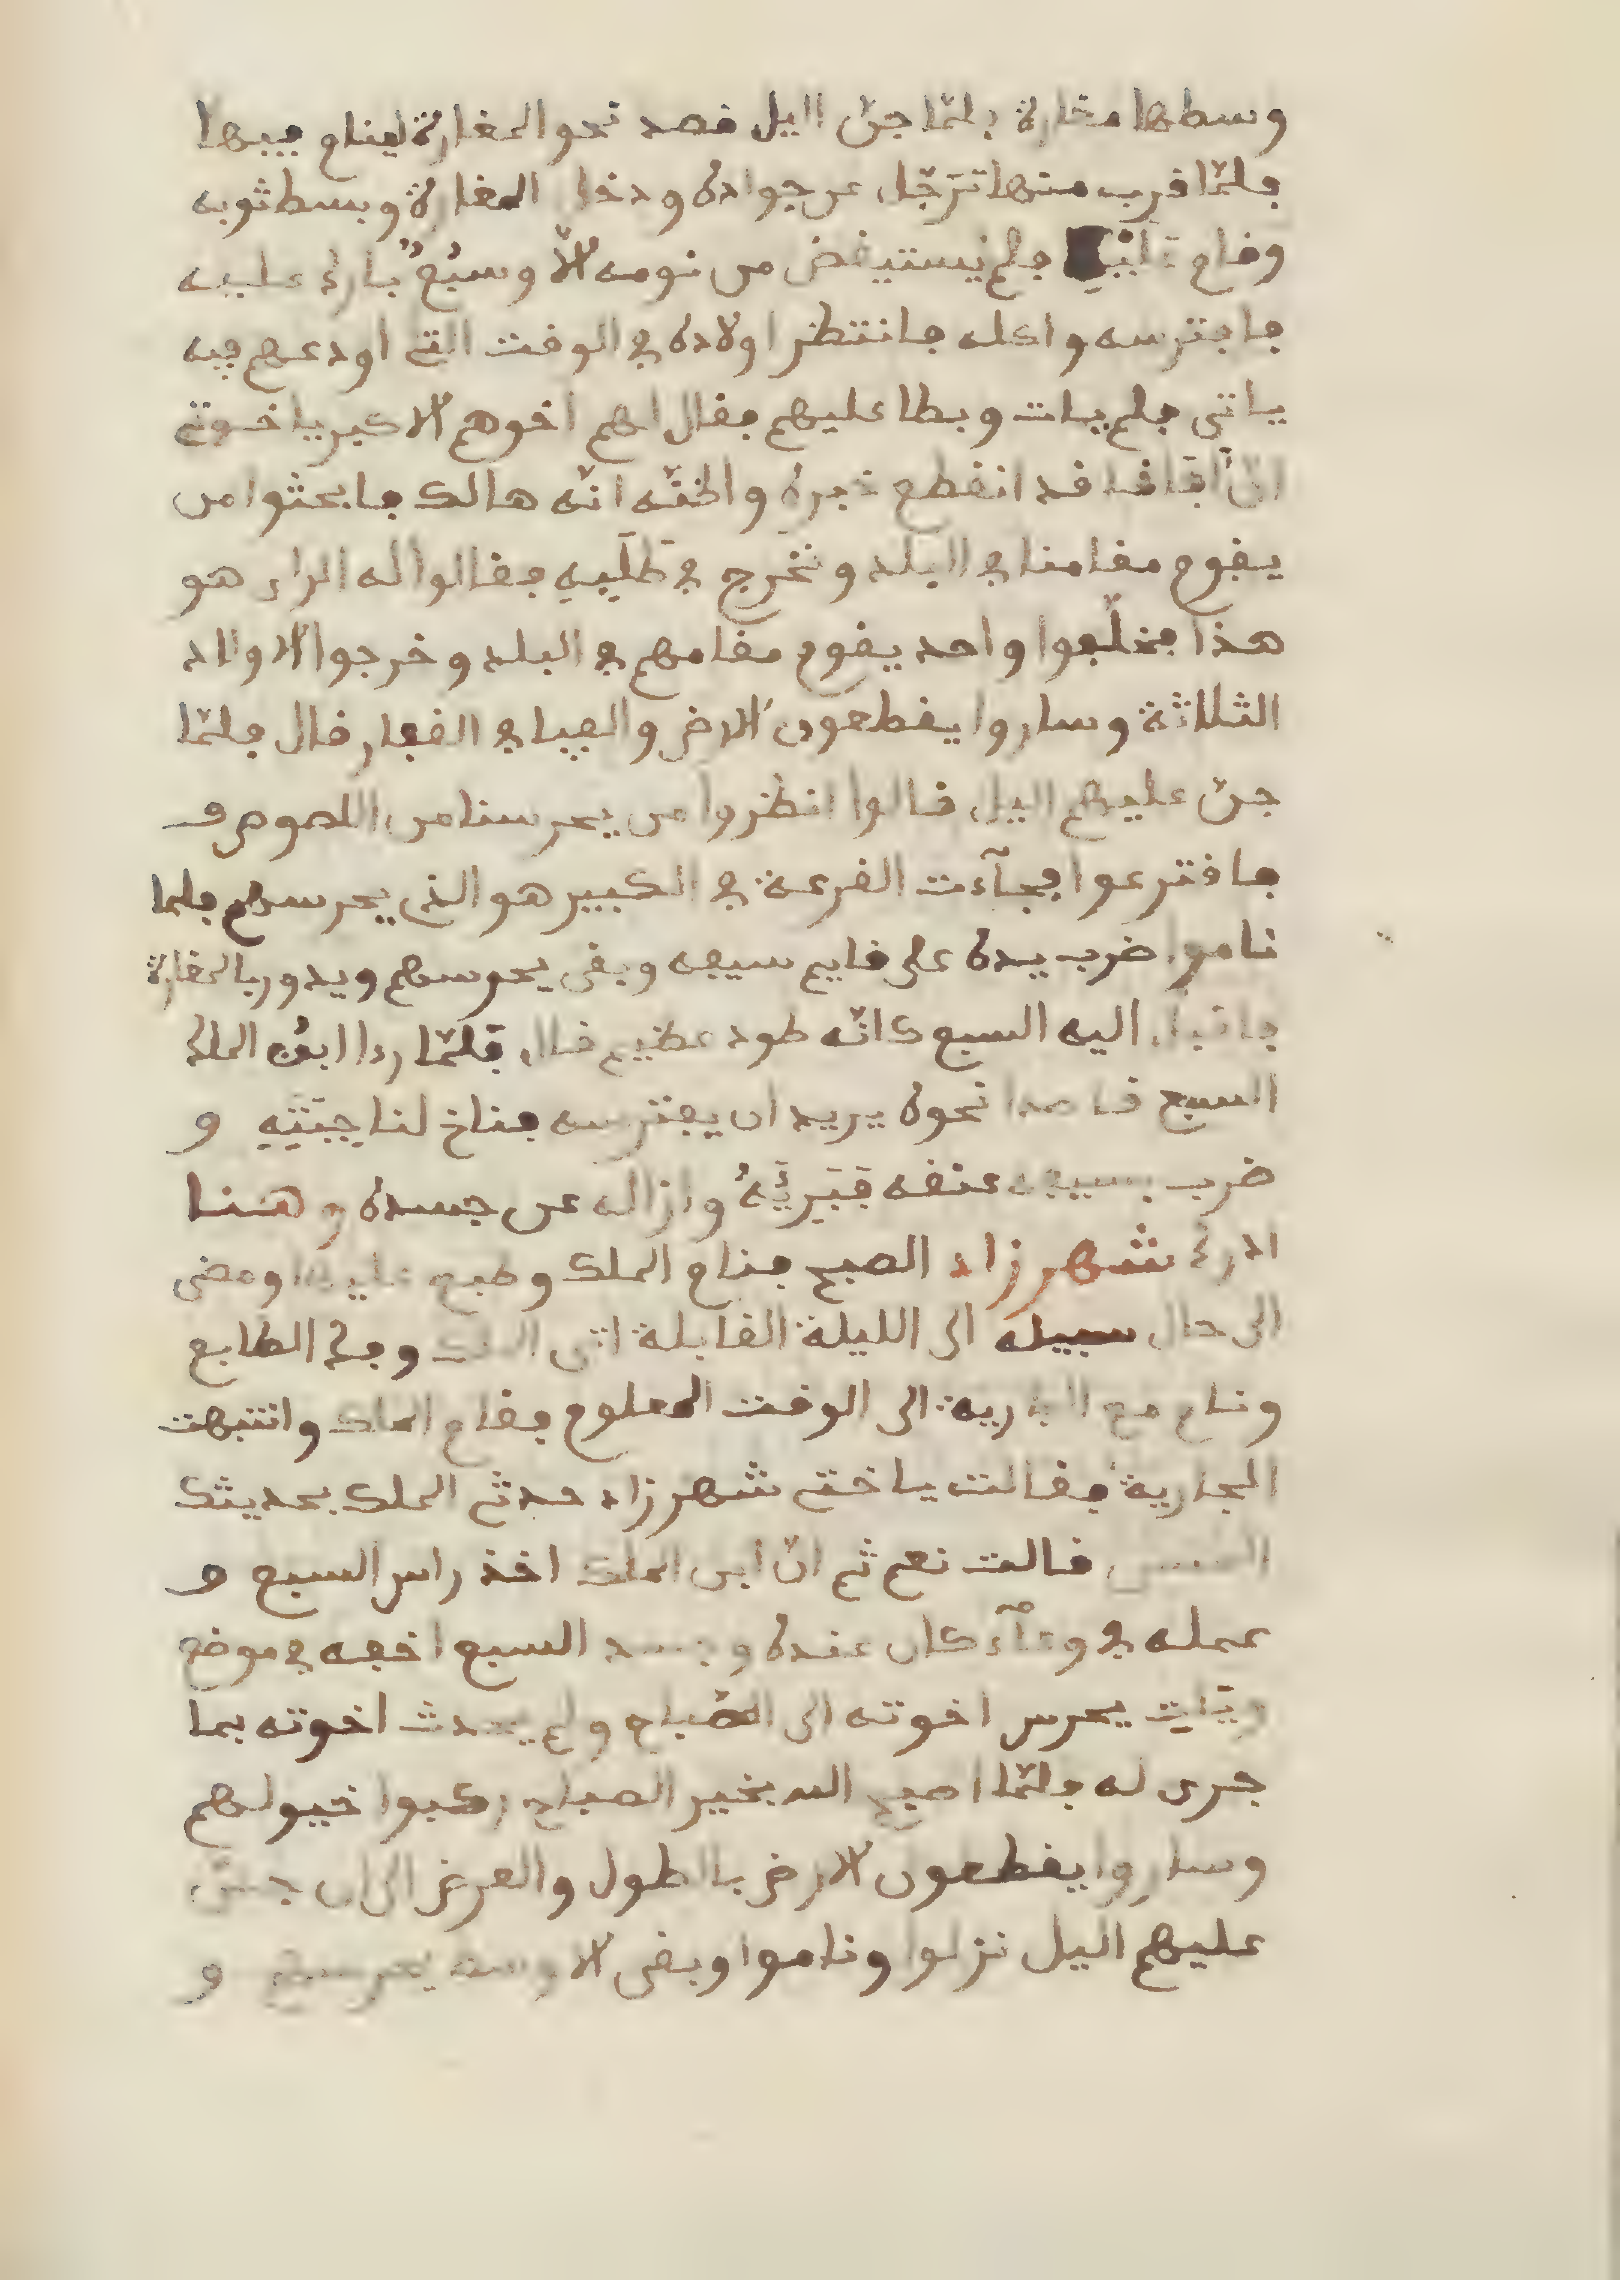 وسطها مغارة فلمّا جنّ اليل قصد نحو المغارة لينام فيها
فلمّا قرب منها تَرَجّل عن جواده ودخل المغارة وبسط ثوبه
ونام فلم يستيقض من نومه الّا وسبُعٌ بارك عليه
فافترسه واكله فانتظر اولاده في الوقت التي اودعهم فيه
ياتي فلم يات وبطا عليهم فقال لهم اخوهم الاكبر ياخوتي
انّ قد انقطع خبره واظنّه انّه هالك فابعثوا من
يقوم مقامنا في البلد ونخرج في طَلَبِهِ فقالوا له الراي هو
هذا فخلّفوا واحد يقوم مقامهم في البلد وخرجوا الاولاد
الثلاثة وساروا يقطعون الارض والفيافي القفار قال فلمّا
جنّ عليهم اليل قالوا انظروا من يحرسنا من اللصوص و
فاقترعوا فجآءت القرعة في الكبير هو الذي يحرسهم فلما
ناموا ضرب يده على قايم سيفه وبقى يحرسهم ويدور بالمغارة
فاقبل اليه السبع كانّه طود عظيم قال فَلمّا رءا ابن الملك
السبع قاصدا نحوه يريد ان يفترسه فناخ لنا جِبَتَيْهِ و
ضرب بسيفه عنقه فَبَرِيَهُ وازاله عن جسده وهنا
ادرك شهرزاد الصبح فنام الملك وطبع عليها ومضى
الى حال سبيله الى الليلة القابلة اتى الملك وفك الطابع
ونام مع الجارية الى الوقت المعلوم فقام الملك وانتبهت
الجارية فقالت ياختي شهرزاد حدثي الملك بحديثك
الحسن قالت نعم ثم انّ ابن الملك اخذ راس السبع و
عمله في وعآء كان عنده وجسد السبع اخفه في موضع
وبَاتِ يحرس اخوته الى الصّباح ولم يحدث اخوته بما
جرى له فلمّا اصبح الله بخير الصباح ركبوا خيولهم
وساروا يقطعون الارض بالطول والعرض الى ان جنّ
عليهم اليل نزلوا وناموا وبقى الاوسط يحرسهم و